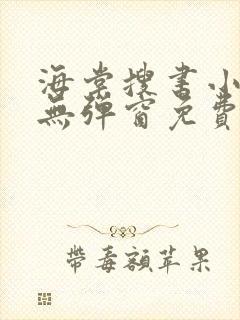 海棠搜書小
無彈窗免費
帶毒額蘋果